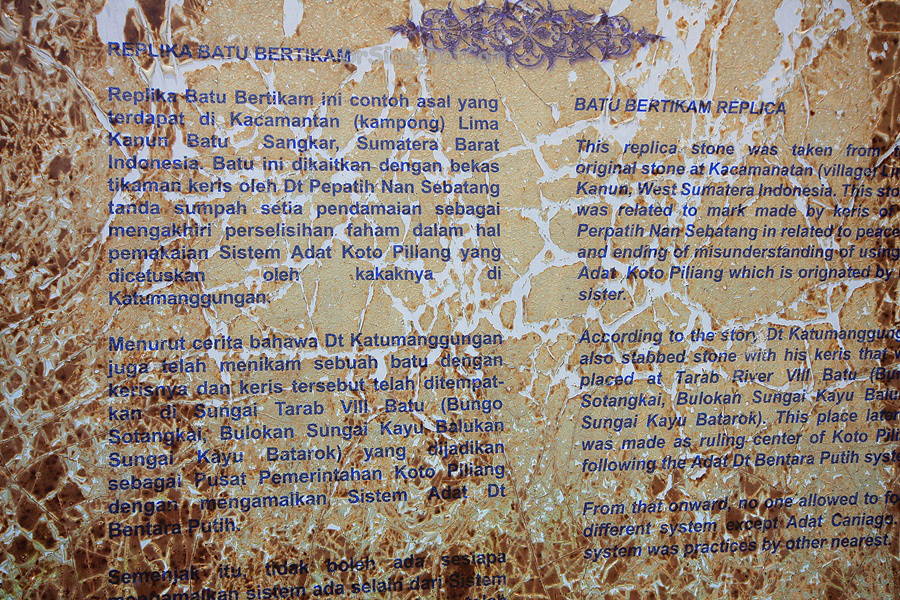 REPLIKA BATU BERTIKAM
Replika Batu Bertikam ini contoh asal yang
terdapat di Kacamantan (kampong) Lima
Kanun Batu Sangkar, Sumatera Barat
Indonesia. Batu ini dikaitkan dengan bekas
tikaman keris oleh Dt Pepatih Nan Sebatang
tanda sumpah setia pendamaian sebagai
mengakhiri perselisihan faham dalam hal
pemakaian Sistem Adat Koto Piliang yang
dicetuskan oleh kakaknya di
Katumanggungan.
Menurut cerita bahawa Dt Katumanggungan
juga telah menikam sebuah batu dengan
kerisnya dan keris tersebut telah ditempat-
kan di Sungai Tarab VIII Batu (Bungo
Sotangkai, Bulokan Sungai Kayu Balukan
Sungai Kayu Batarok) yang dijadikan
sebagai Pusat Pemerintahan Koto Piliang
dengan mengamalkan Sistem Adat Dt
Bentara Putih.
Semenjak itu, tidak boleh ada sesiapa
mengamalkan sistem ada selain dari Sistem
BATU BERTIKAM REPLICA
This replica stone was taken from
original stone at Kacamanatan (village)
Kanun, West Sumatera Indonesia. This
was related to mark made by keris of
Perpatih Nan Sebatang in related to peace
and ending of misunderstanding of using
Adat Koto Piliang which is orignated by
sister.
According to the story Dt Katumanggung
also stabbed stone with his keris that
placed at Tarab River VIII Batu
Sotangkai, Bulokan Sungai Kayu
Sungai Kayu Batarok). This place
was made as ruling center of Koto
following the Adat Dt Bentara Putih
From that onward, no one allowed to
different system except Adat Caniago.
system was practices by other nearest.